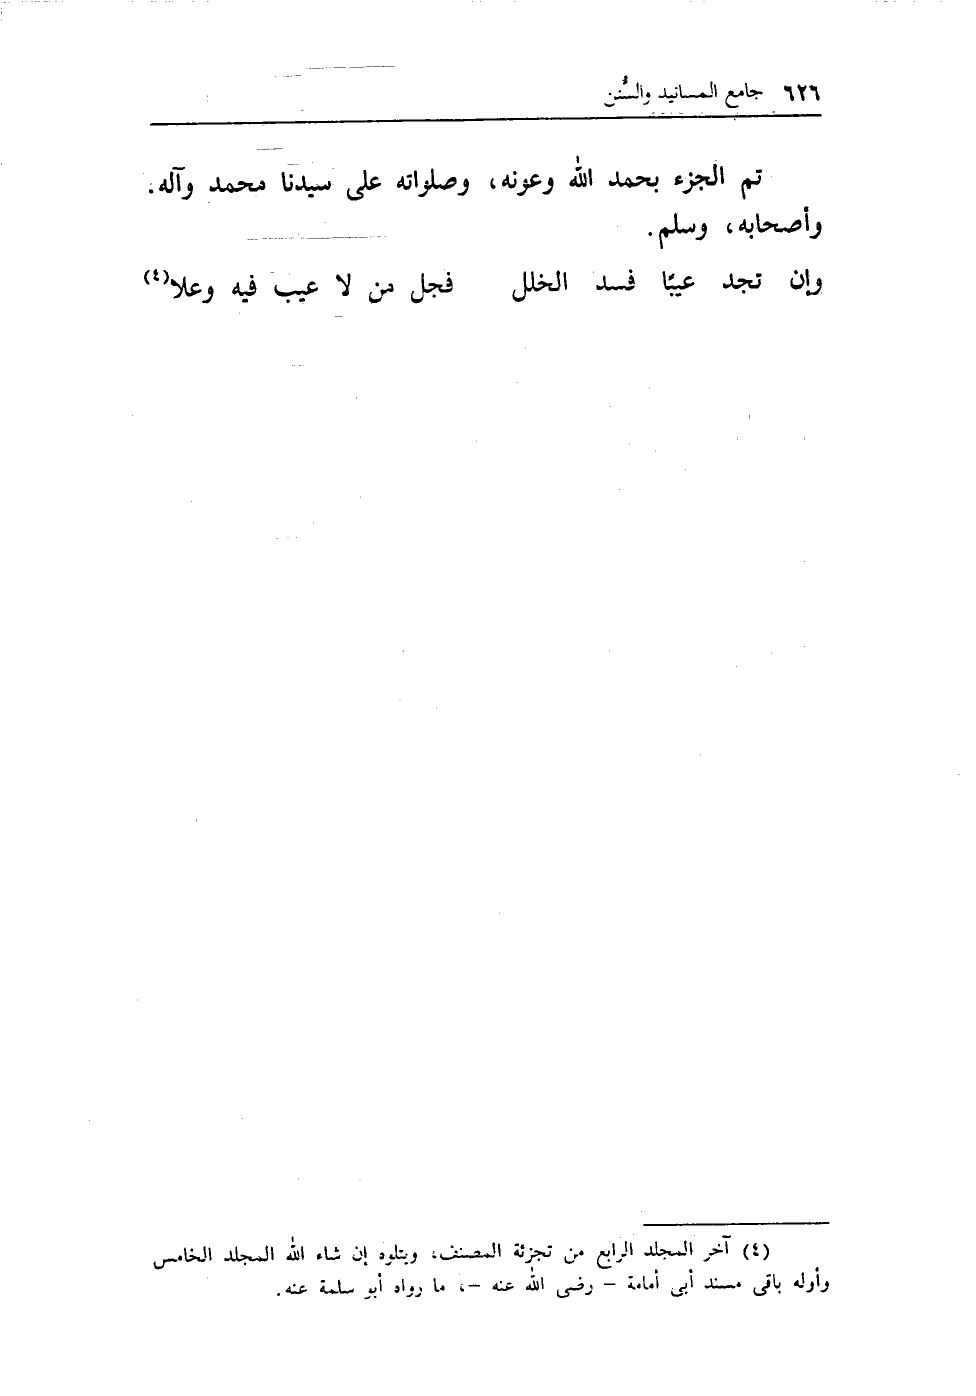 ٦٢٦ جامع المسانيد والسُّنن
تم الجزء بحمد الله وعونه، وصلواته على سيدنا محمد وآله.
وأصحابه، وسلم.
وإن تجد عيبًا فسد الخلل فجل من لا عيب فيه وعلا(٤)
(٤) آخر المجلد الرابع من تجزئة المصنف، ويتلوه إن شاء الله المجلد الخامس
وأوله باقى مسند أبى أمامة – رضى الله عنه –، ما رواه أبو سلمة عنه.